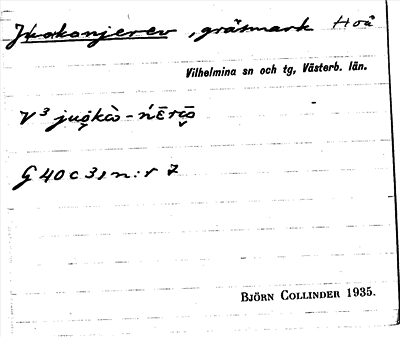 Jkokanjerev, gräsmark Hoå
Vilhelmina sn och tg, Västerb. län.
V³
G 40 c 3, n:r 7
BJÖRN COLLINDER 1935.